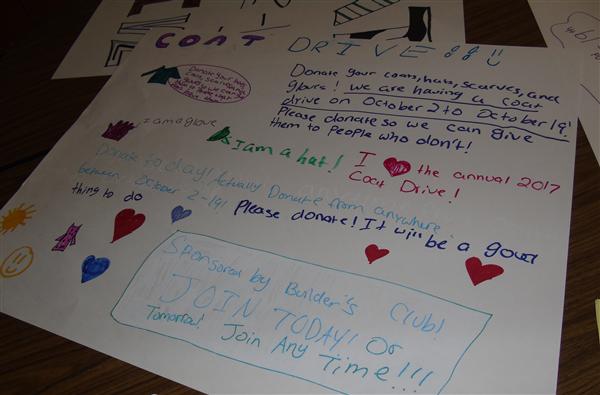 COAT DRIVE!!
Donate your coats, hats, scarves, and
glove! we are having a coat
drive on October 2 to October 19!
Please donate so we can give
them to people who don't!
Donate your hats
I am a glove
I am a hat! I the annual 2017
Coat Drive!
Donate today! Actually Donate from anywhere
between October 2-19! Please donate! It will be a good
thing to do
Sponsored by Builder's Club!
JOIN TODAY! Or
Tomorrow! Join Any Time!!!